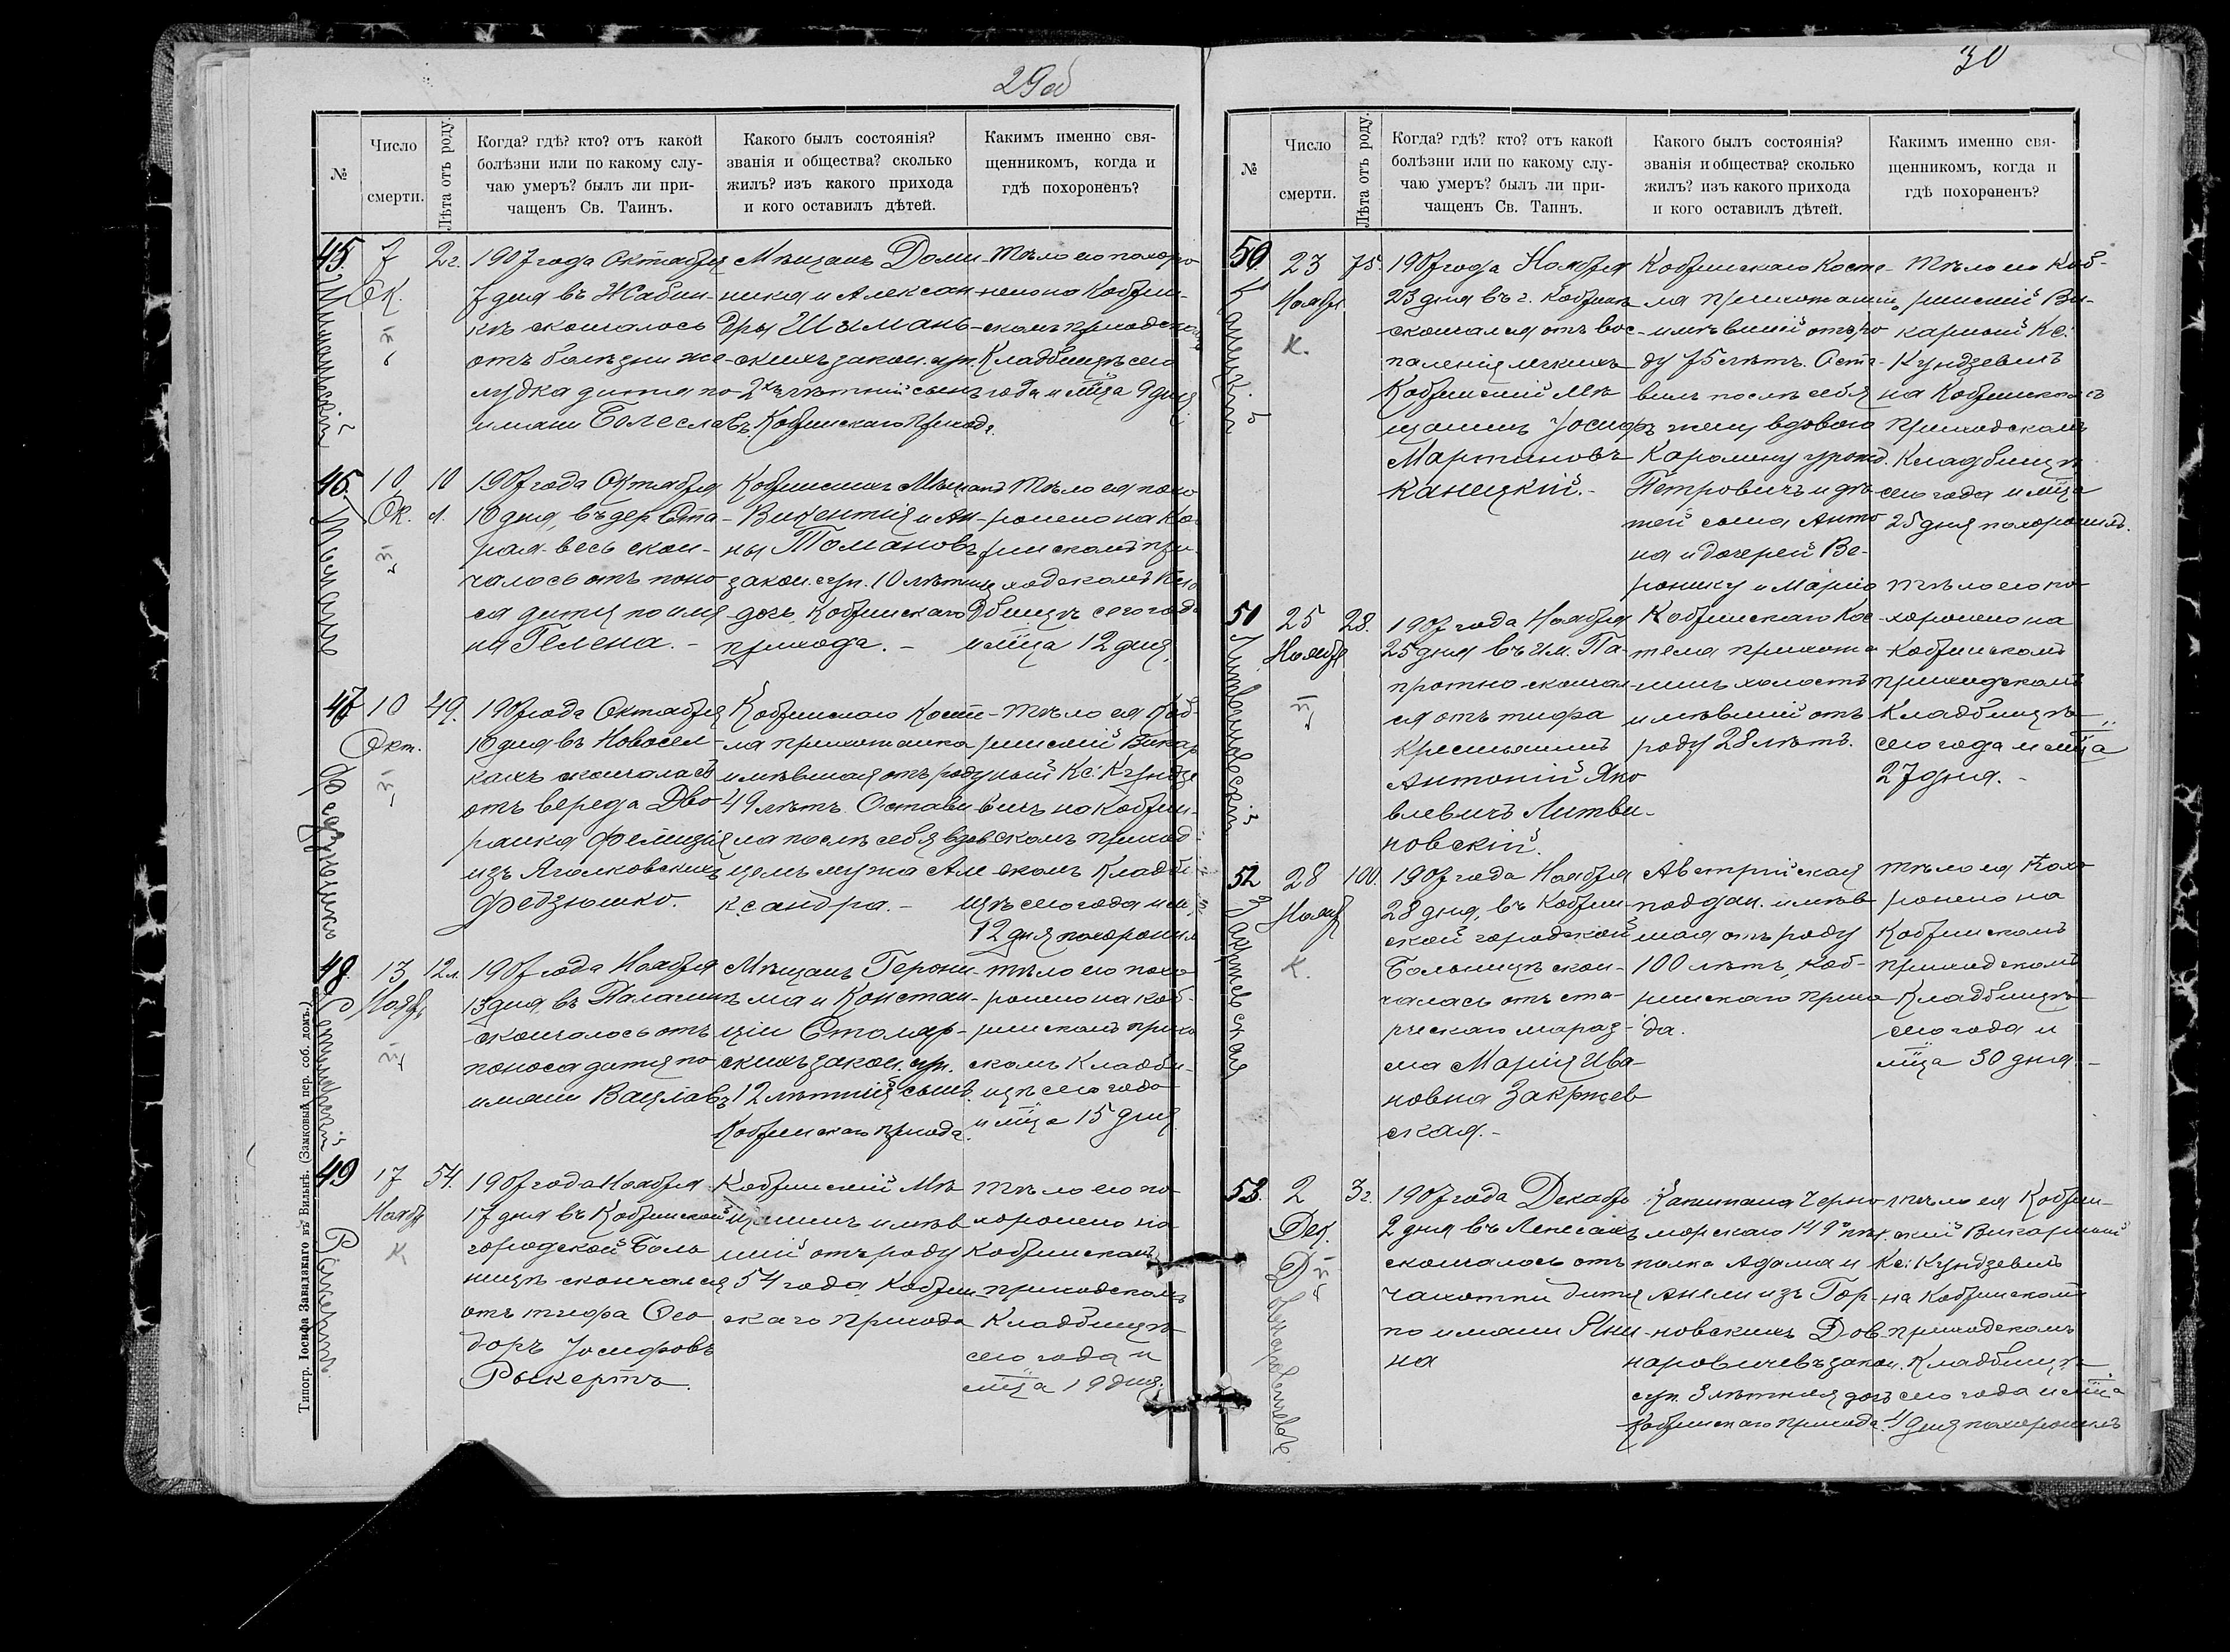 29об
№
Число
смерти.
Лѣта отъ роду.
Когда? гдѣ? кто? отъ какой
болѣзни или по какому слу-
чаю умеръ? былъ ли при-
чащенъ Св. Таинъ.
Какого былъ состоянія?
званія и общества? сколько
жилъ? изъ какого прихода
и кого оставилъ дѣтей.
Какимъ именно свя-
щенникомъ, когда и
гдѣ похороненъ?
45.
Шиманскій
7
Ок.
2 г.
1907 года Октября
7 дня въ Жабин-
кѣ скончалось
отъ болѣзни же-
лудка дитя по
имени Болеславъ.
Мѣщанъ Доми-
ника и Алексан-
дры Шымань-
скихъ закон. суп.
2хъ лѣтній сынъ
Кобринскаго Прихода.
Тѣло его похоро-
нено на Кобрин-
скомъ приходскомъ
Кладбищѣ сего
года и мѣца 9 дня
46.
Томанъ
10
Ок.
10
л.
1907 года Октября
10 дня, въ дер. Ста-
рая-весь скон-
чалось отъ поно-
са дитя по име-
ни Гелена. -
Кобринскихъ Мѣщанъ
Викентія и Ан-
ны Томановъ
закон. суп. 10 лѣтняя
дочь, Кобринскаго
прихода. -
Тѣло ея похо
ронено на Ко-
бринскомъ при-
ходскомъ Кла
дбищѣ сего года
и мѣца 12 дня.
47
Федзюшко
10
Окт.
49.
1907 года Октября
10 дня въ Новосел-
кахъ скончалась
отъ вереда Дво-
рянка Фелиція
изъ Яголковскихъ
Федзюшко.
Кобринскаго Косте-
ла прихожанка
имѣвшая отъ роду
49 лѣтъ. Остави
ла послѣ себя вдов
цемъ мужа Але
ксандра. -
Тѣло ея Коб-
ринскій Викар
ный Кс: Кундзе
вичъ на Кобрин-
скомъ приход-
скомъ Кладби-
щѣ сего года и м.
12 дня похоронилъ
48
Столярскій
13
Нояб.
12 л.
1907 года Ноября
13 дня, въ
скончалось отъ
поноса дитя по
имени Вацлавъ
Мѣщанъ Герони-
ма и Констан-
ціи Столяр-
скихъ закон. суп.
12 лѣтній сынъ.
Кобринскаго прихода.
тѣло его похо
ронено на Коб-
ринскомъ приход
скомъ Кладби-
щѣ сего года
и мѣца 15 дня
49
Рыкертъ
17
Нояб
К
54.
1907 года Ноября
17 дня въ Кобринской
городской Боль
ницѣ скончался
отъ тифа Ѳео
доръ Іосифовъ
Рыкертъ.
Кобринскій Мѣ
щанинъ имѣв
шій отъ роду
54 года, Кобрин-
скаго прихода
Тѣло его по
хоронено на
Кобринскомъ
приходскомъ
Кладбищѣ
сего года и
мѣца 19 дня.
Типогр. Іосифа Завадзкаго въ Вильнѣ. (Замковый пер. соб. домъ.)
30
№
Число
смерти.
Лѣта отъ роду.
Когда? гдѣ? кто? отъ какой
болѣзни или по какому слу-
чаю умеръ? былъ ли при-
чащенъ Св. Таинъ.
Какого былъ состоянія?
званія и общества? сколько
жилъ? изъ какого прихода
и кого оставилъ дѣтей.
Какимъ именно свя-
щенникомъ, когда и
гдѣ похороненъ?
50.
Канецкій
23
Ноября
К.
75.
1907 года Ноября
23 дня въ г. Кобринѣ
скончался отъ вос-
паленія легкихъ
Кобринскій Мѣ
щанинъ Іосифъ
Мартиновъ
Канецкій. -
Кобринскаго Косте-
ла прихожанинъ,
имѣвшій отъ ро
ду 75 лѣтъ. Оста-
вилъ послѣ себя
жену вдовою
Каролину урожд.
Петровичъ и дѣ
тей сына Анто
на и дочерей Ве-
ронику и Марію
Тѣло его Коб-
ринскій Ви-
карный Кс:
Кундзевичъ
на Кобринскомъ
Приходскомъ
Кладбищѣ
сего года и мѣца
25 дня похоронилъ.
51
Литвиновскій
25
Ноября
28.
1907 года Ноября
25 дня въ им. Па-
протно скончал-
ся отъ тифа
Крестьянинъ
Антоній Яко
влевичъ Литви-
новскій.
Кобринскаго Кос-
тела прихожа
нинъ холостъ
имѣвшій отъ
роду 28 лѣтъ.
Тѣло его по-
хоронено на
Кобринскомъ
приходскомъ
Кладбищѣ
сего года и мѣца
27 дня. -
52
Закржевская
28
Нояб
К.
100.
1907 года Ноября
28 дня, въ Кобрин-
ской городской
Больницѣ скон-
чалась отъ ста-
рческаго мараз-
ма Марія Ива-
новна Закржев
ская. -
Австрійская
поддан. имѣв
шая отъ роду
100 лѣтъ, коб-
ринскаго прихо
да.
Тѣло ея Похо
ронено на
Кобринскомъ
приходскомъ
Кладбищѣ
сего года и
мѣца 30 дня. -
53.
Довнаровичевъ.
2
Дек.
3 г.
1907 года Декабр
2 дня въ Лепесахъ
скончалось отъ
чахотки дитя
по имени Яни-
на
Капитана Черно
морскаго 149го пѣх.
полка Адама и
Анели изъ Гор-
новскихъ Дов-
наровичевъ закон.
суп. 3 лѣтняя дочь
Кобринскаго прихода.
Тѣло ея Кобрин-
скій Викарный
Кс: Кундзевичъ
на Кобринскомъ
приходскомъ
Кладбищѣ
сего года и мѣца
4 дня похоронилъ